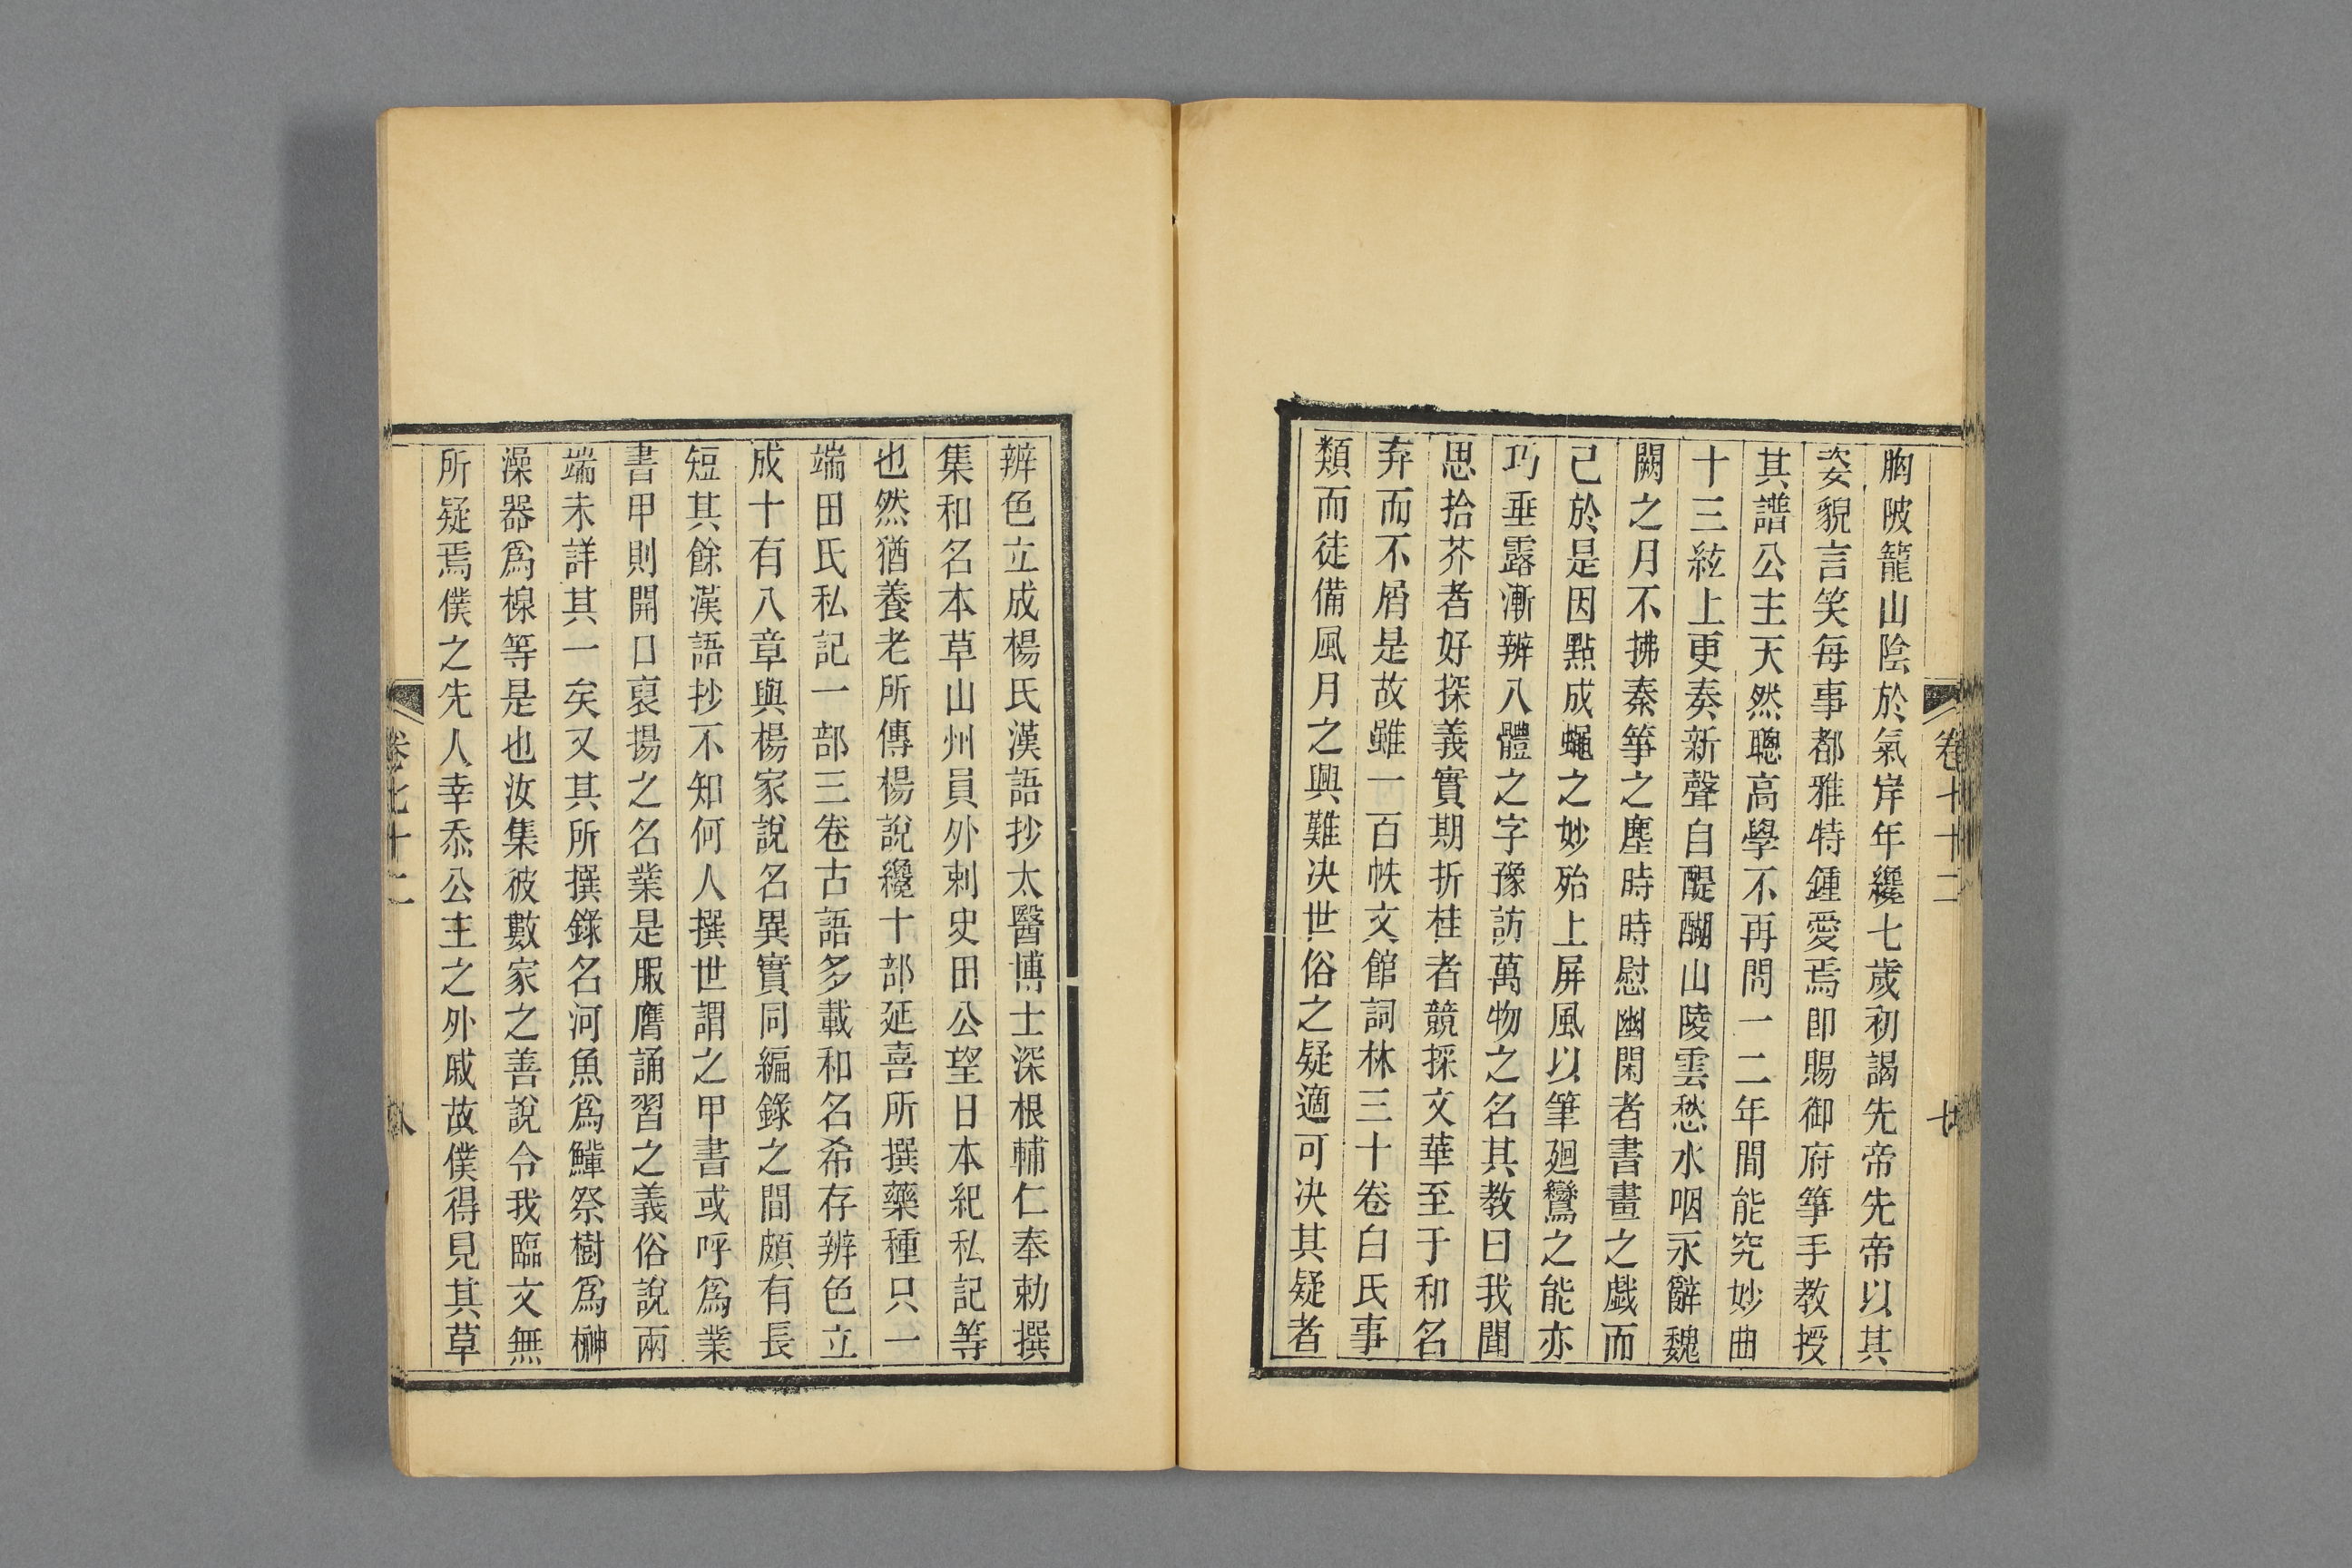 胸陂籠山陰於氣岸年纔七歲初謁先帝先帝以其
姿貌言笑每事都雅特鍾愛焉卽賜御府箏手教授
其譜公主天然聰高學不再問一二年間能究妙曲
十三絃上更奏新聲自醍醐山陵雲愁水咽永辭魏
闕之月不拂秦箏之塵時時慰幽閑者書畫之戲而
己於是因點成蠅之妙殆上屏風以筆廻鸞之能亦
巧垂露漸辨八體之字豫訪萬物之名其教曰我聞
思拾芥者好探義實期折桂者競採文華至于和名
弃而不屑是故雖一百帙文館詞林三十卷白氏事
類而徒備風月之興難决世俗之疑適可决其疑者
辨色立成楊氏漢語抄太醫博士深根輔仁奉勅撰
集和名本草山州員外刺史田公望日本紀私記等
也然猶養老所傳楊說纔十部延喜所撰藥種只一
端田氏私記一部三卷古語多載和名希存辨色立
成十有八章與楊家說名異實同編錄之間頗有長
短其餘漢語抄不知何人撰世謂之甲書或呼爲業
書甲則開口裒揚之名業是服膺誦習之義俗說兩
端未詳其一矣又其所撰錄名河魚爲鱓祭樹爲榊
澡器爲楾等是也汝集彼數家之善說令我臨文無
所疑焉僕之先人幸忝公主之外戚故僕得見其草